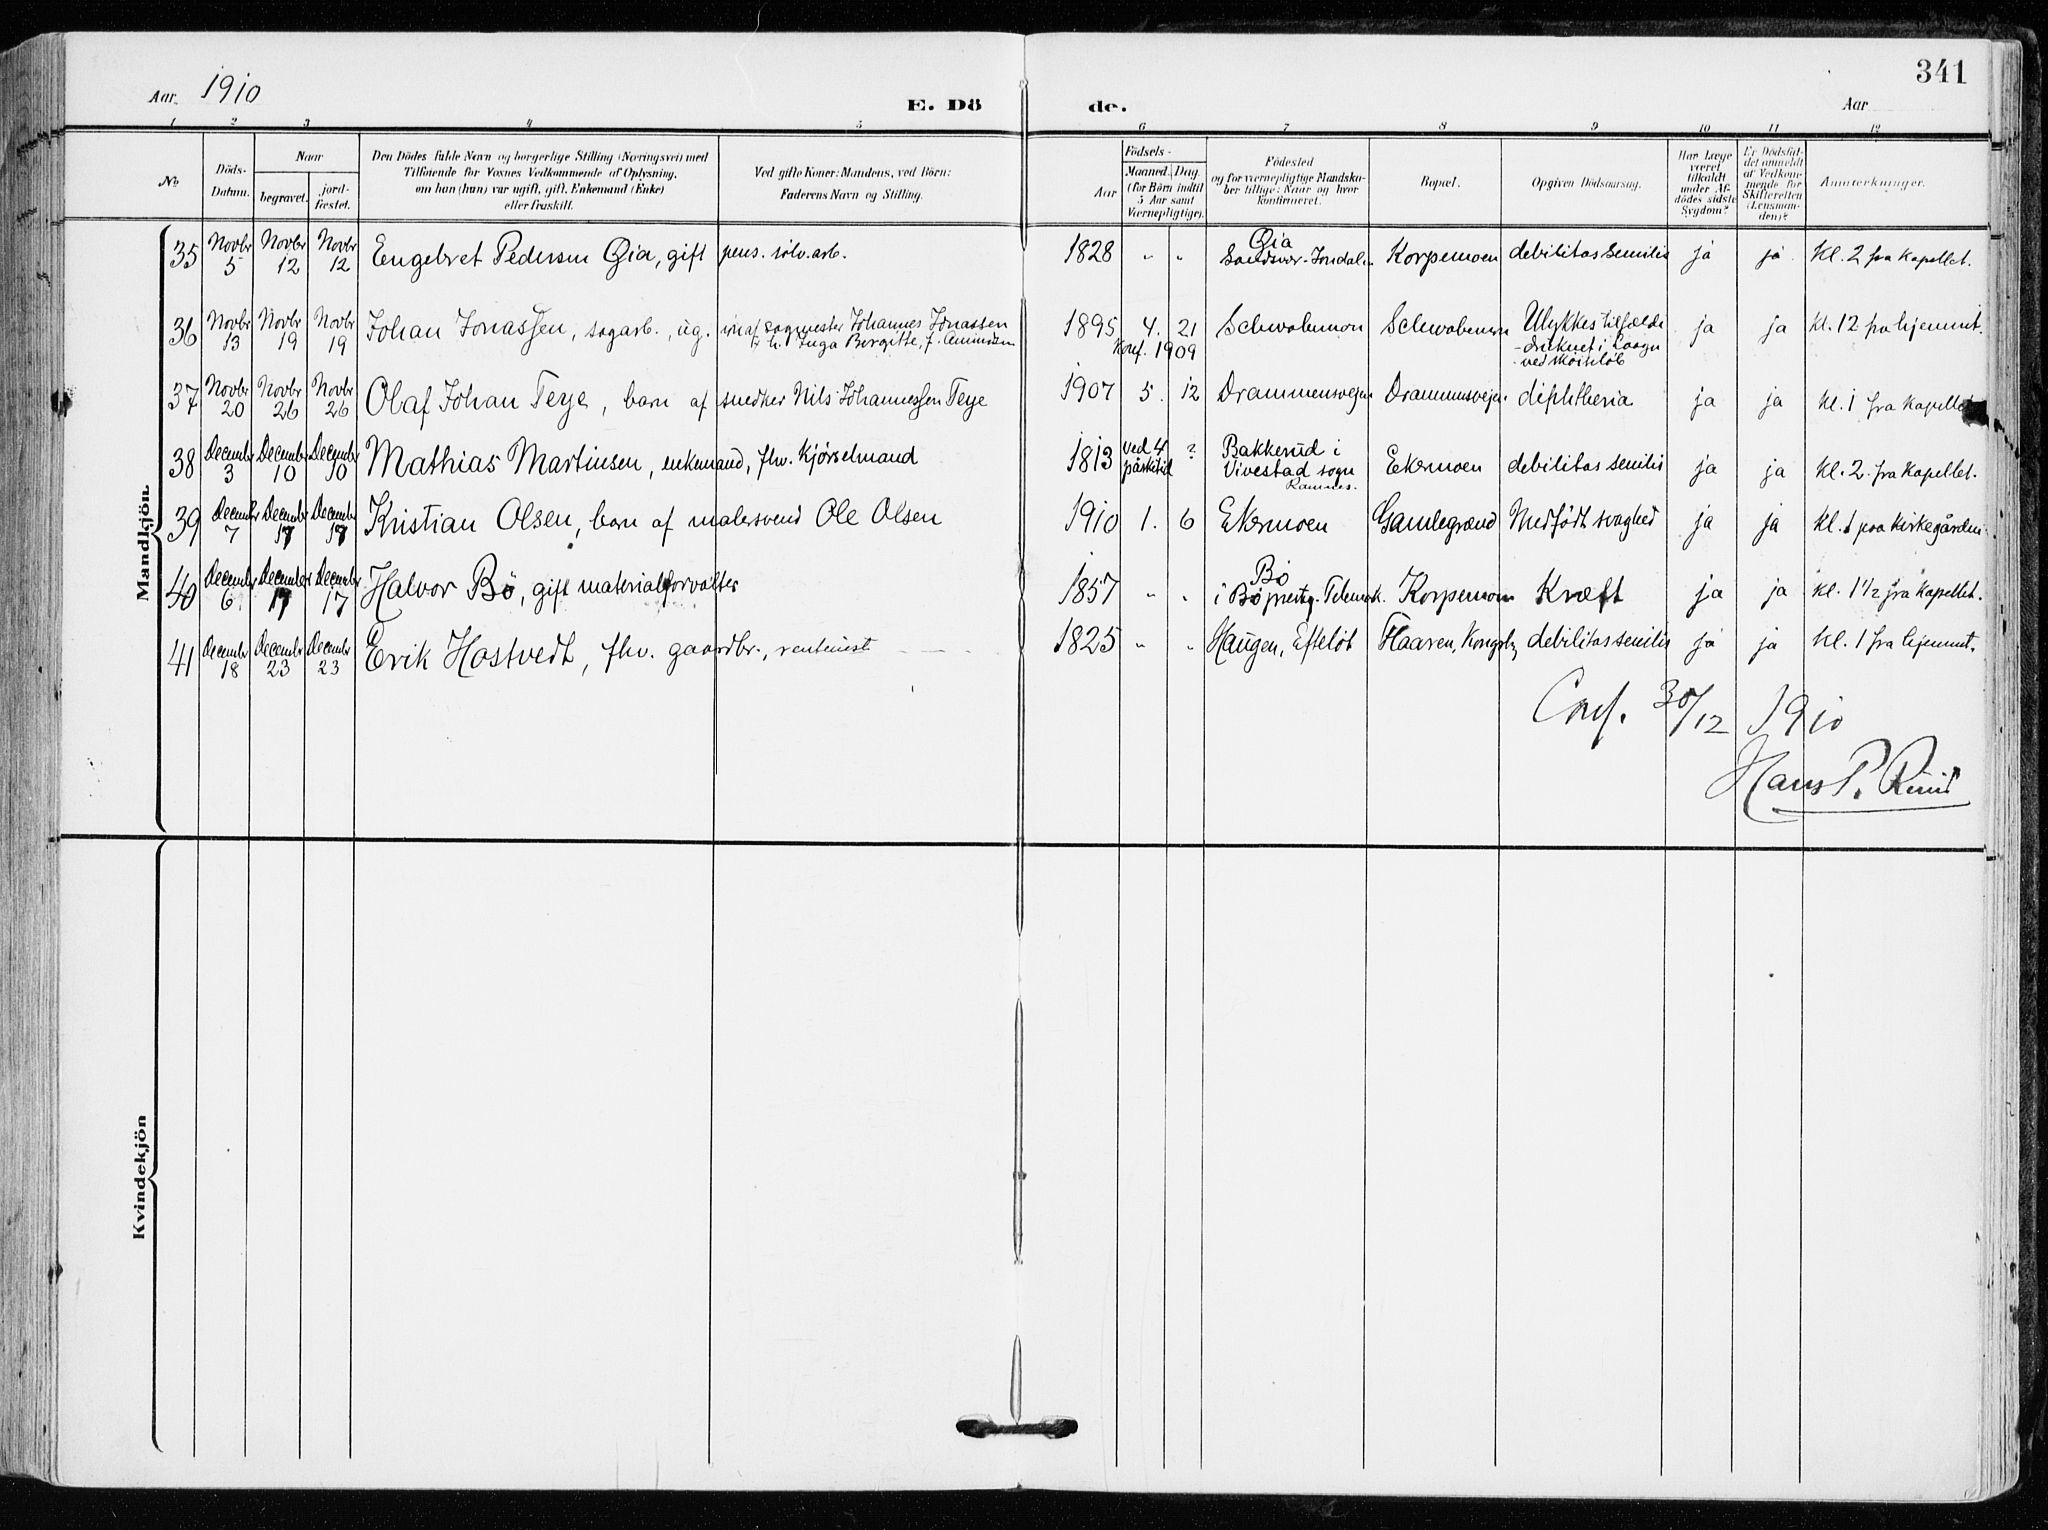 341
Aar 1910
E. Dö de.
Aar
1 2 3 4 5 6 7 8 9 10 11 12
No.
Döds-
Datum.
Naar
begravet.
jord-
fæstet.
Den Dödes fulde Navn og borgerlige Stilling (Næringsvei) med
Tilföiende for Voxnes Vedkommende af Oplysning,
om han (hun) var ugift, gift, Enkemand (Enke)
eller fraskilt.
Ved gifte Koner: Mandens, ved Börn:
Faderens Navn og Stilling.
Födsels-
Aar
Maaned. Dag.
(for Börn indtil
5 Aar samt
Værnepligtige).
Födested
og for værnepligtige Mandska-
ber tillige: Naar og hvor
konfirmeret.
Bopæl.
Opgiven Dödsaarsag.
Har Læge
været
tilkaldt
under Af-
dödes sidste
Sygdom?
Er Dödsfal-
det anmeldt
af Vedkom-
mende for
Skifteretten
(Lensman-
den)?
Anmærkninger.
Mandkjön.
35 Novbr 5 Novbr 12 Novbr 12 Engebret Pedersen Gia, gift pens. sölv.arb. 1828 " " Gia Sandsvær-Jondalen Korpemoen debilitas senilis ja ja Kl. 2 fra kapellet.
36 Novbr 13 Novbr 19 Novbr 19 Johan Jonassen, sagarb., ug. sön af sagmester Johannes Jonassen
& h. Inga Bergitte, f. Amundsen 1895 4. 21 Schwabemoen Schwabemoen Ulykkestilfælde ja ja Kl. 12 fra hjemmet.
Konf. 1909 - druknet i Laagen
ved
37 Novbr 20 Novbr 26 Novbr 26 Olaf Johan Teye, barn af snedker Nils Johannessen Teye 1907 5. 12 Drammensvejen Drammensvejen diphtheria ja ja Kl. 1 fra kapellet
38 Decembr 3 Decembr 10 Decembr 10 Mathias Martinsen, enkemand, fhv. kjörselmand 1813 ved 4 påsketid ? Bakkerud i
Vivestad sogn
Ramnes. Ekermoen debilitas senilis ja ja Kl. 2 fra kapellet.
39 Decembr 7 Decembr 17 Decembr Kristian Olsen, barn af malersvend Ole Olsen 1910 1. 6 Ekermoen Gamlegrænd Medfödt svaghed ja ja Kl. 1 paa kirkegården
40 Decembr 6 December 17 Decembr 17 Halvor Bö, gift materialforvalter 1857 " " Bö
i Bö prestg. Telemark. Korpemoen Kræft ja ja Kl. 1½ fra kapellet.
41 Decembr 18 Decembr 23 Decembr 23 Erik Hostvedt, fhv. gaardbr., rentenist 1825 " " Haugen, Efteløt Haaren, Kongsbg debilitas senilis ja ja Kl. 1 fra hjemmet.
Conf. 30/12 1910
Hans P. Ruud
Kvindekjön